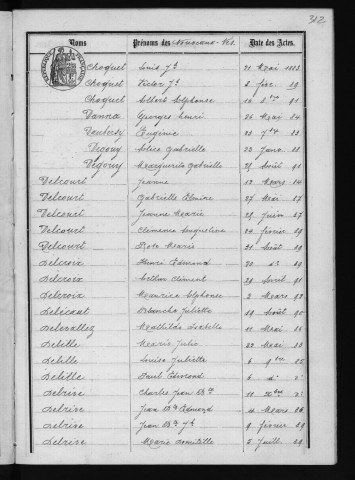 312
Noms Prénoms des Nouveaux-Nés Date des Actes.
Choquet Louis Jh 21 Mai 1883
Choquet Victor Jh 5 fév. 89
Choquet Albert Alphonse 16 91
Danna Georges Henri 26 Mai 84
Eugénie 83
Degouy Gabrielle 23 Janv. 88
Degouy Marguerite Gabrielle 25 Août 91
Delcourt Jeanne 12 Mars 84
Delcourt Gabrielle Elmire 27 Mai 87
Delcourt Jeanne Marie 25 Juin 87
Delcourt Clémence Augustine 24 février 89
Delcourt Rose Marie 31 Août 89
Delcroix Henri Edmond 20 do 89
Delcroix Arthur Clément 29 Avril 91
Delcroix Maurice Alphonse 2 Mars 92
Blanche Juliette 19 Août 85
Delevallez Mathilde 11 Mai 85
Delille Marie Julie 22 Mai 83
Delille Louise Juliette 6 9bre 85
Delille Paul 6 do do
Charles Jean Bte 11 Xbre do
Jean Bte Edmond 4 Mars 86
Jean Bte Jh 9 février 89
Marie Domitille 5 Juill. 89